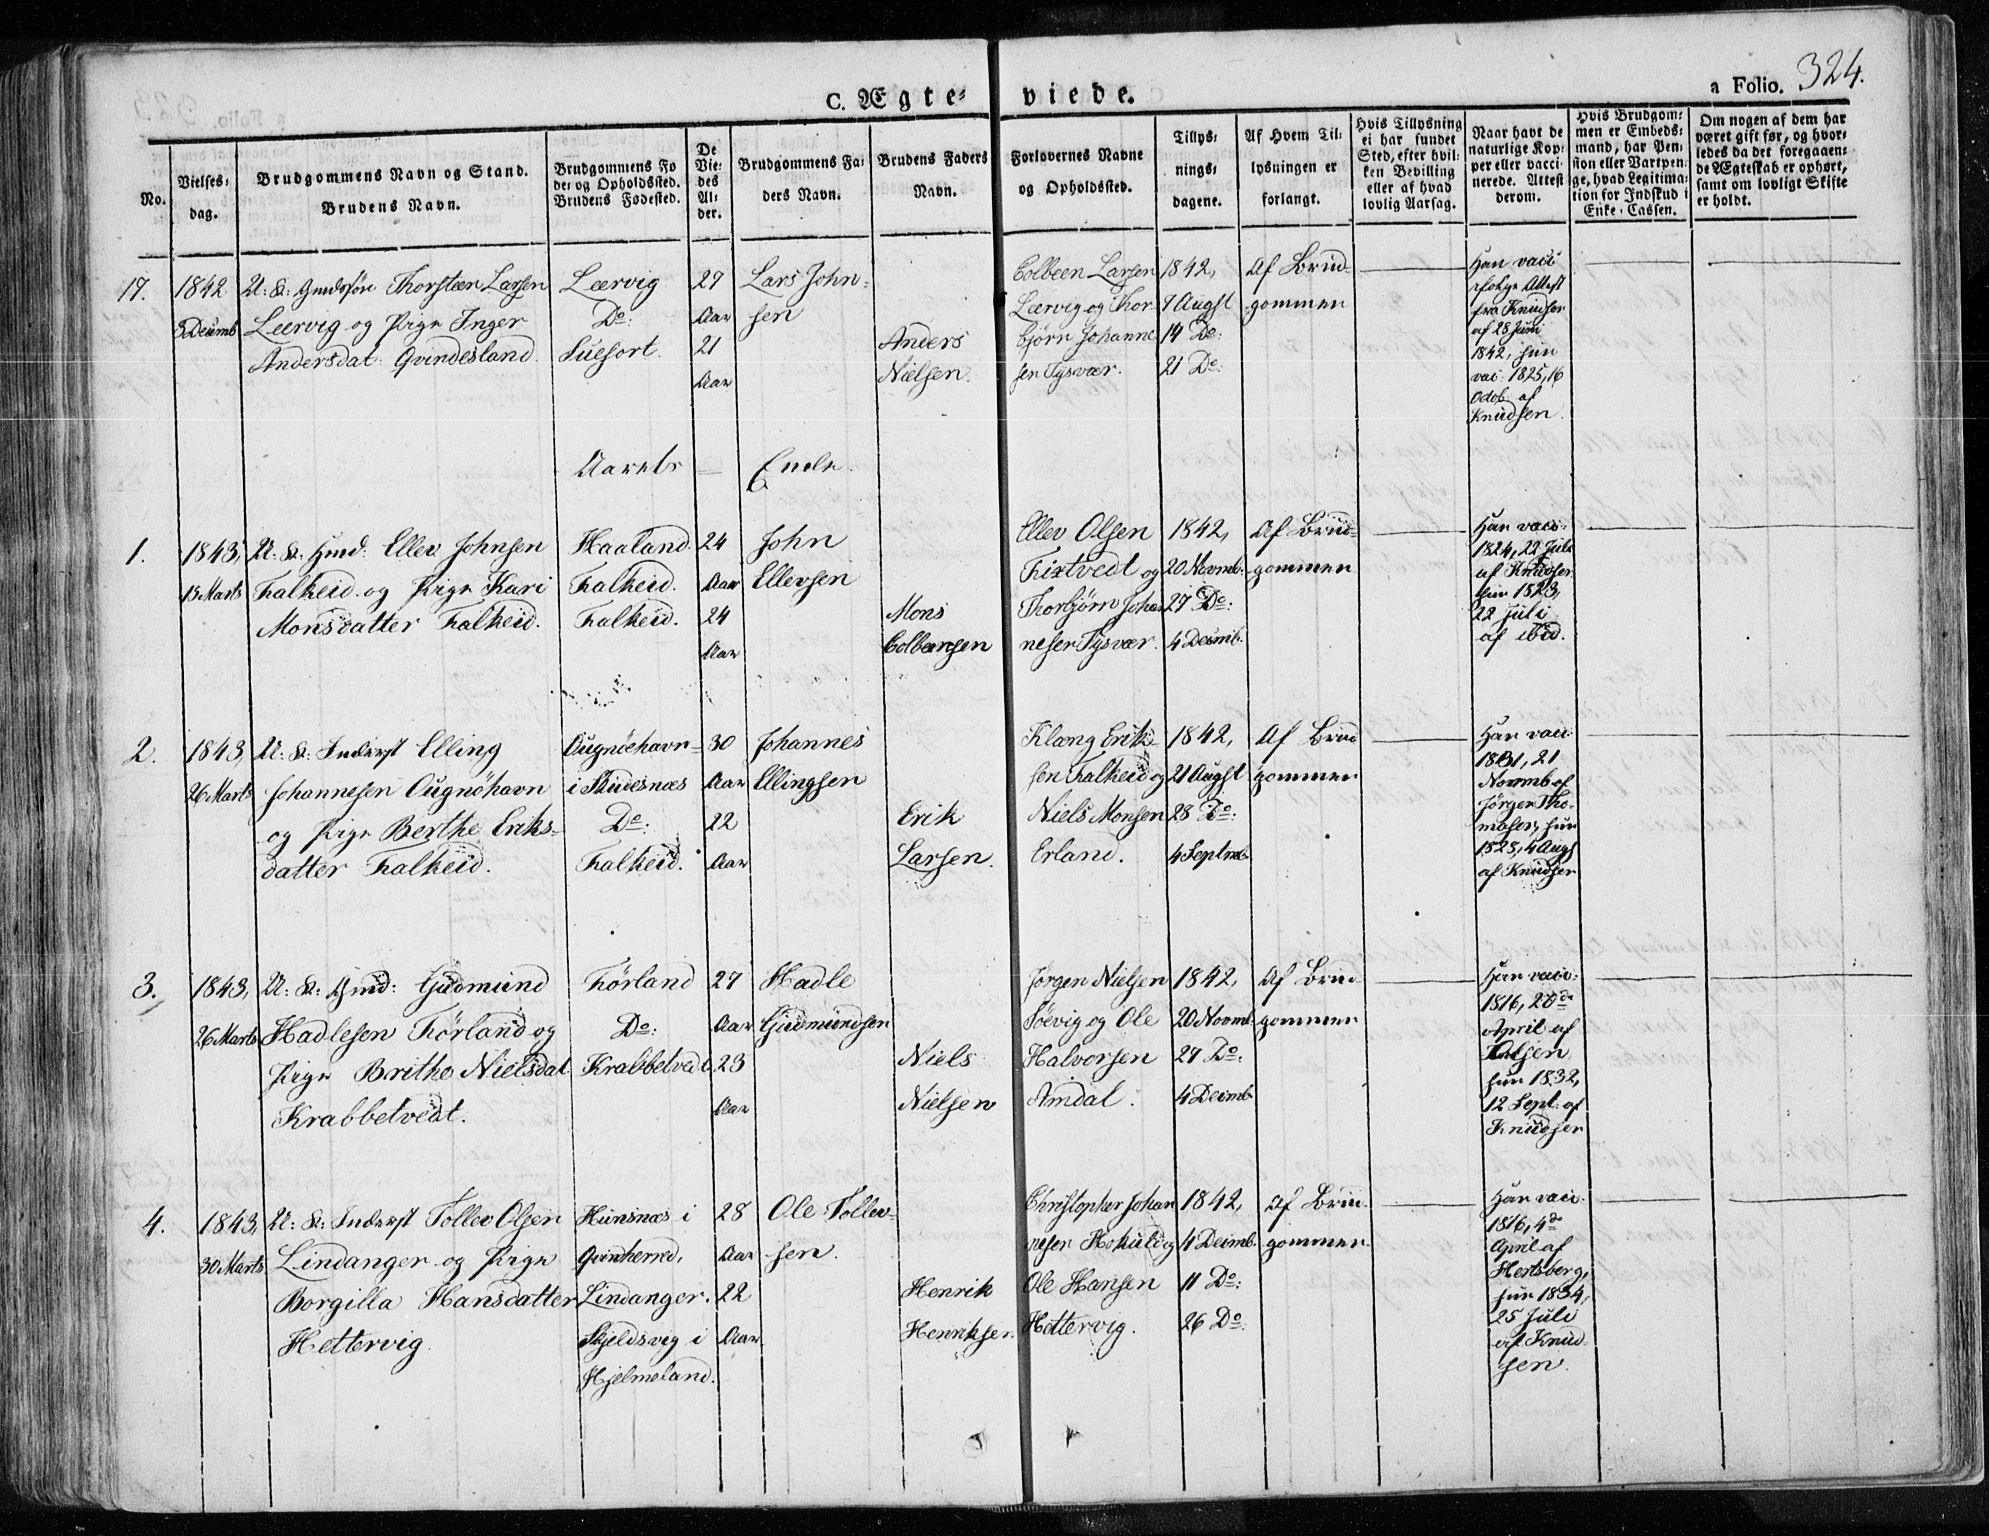 C. Ægte-
viede.
a Folio. 324.
No.
Vielses-
dag.
Brudgommens Navn og Stand.
Brudens Navn.
Brudgommens Fø
de- og Opholdssted.
Brudens Fødested.
De
Vie-
des
Al-
der.
Brudgommens Fa-
ders Navn.
Brudens Faders
Navn.
Forlovernes Navne
og Opholdssted.
Tillys-
nings-
dagene.
Af Hvem Til-
lysningen er
forlangt.
Hvis Tillysning
ei har fundet
Sted, efter hvil-
ken Bevilling
eller af hvad
lovlig Aarsag.
Naar havt de
naturlige Kop-
per eller vacci-
nerede. Attest
derom.
Hvis Brudgom-
men er Embeds-
mand, har Pen-
sion eller Vartpen-
ge, hvad Legitima-
tion for Indskud i
Enke-Cassen.
Om nogen af dem har
været gift før, og hvor-
ledes da det foregaaen-
de Ægteskab er ophørt,
samt om lovligt Skifte
er holdt.
17.
1842
5 Decmb
U: K: Gmdsøn Thorsteen Larsen
Leervig og Pige Inger
Andersdat: Qvindesland.
Leervig
Do:
Suesort.
27
Aar
21
Aar
Lars John-
sen
Anders
Nielsen.
Colbeen Larsen
Leervig og Thor-
bjørn Johanne
sen Tysvær.
1842,
7 Augst
14 Do:
21 Do:
Af Brud-
gommen
Han vacc:
ifølge Attest
fra Knudsen
af 28 Juni
1842, hun
vac: 1825, 16
Octob: af
Knudsen.
Aarets — Ende.
1.
1843,
15 Marts
U: K: Gmd: Ellev Johnsen
Falkeid og Pige Kari
Monsdatter Falkeid.
Haaland
Falkeid.
Falkeid.
24
Aar
24
Aar
John
Ellevsen
Mons
Colbensen
Ellev Olsen
Fixtvedt og
Thorbjørn Johan
nesen Tysvær.
1842,
20 Novmb.
27 Do:
4 Decmb.
Af Brud-
gommen
Han vacc:
1824, 22 Juli
af Knudsen
hun 1823,
22 juli
af ibid.
2.
1843,
26 Marts
U: K: Inderst Elling
Johannesen Ougnöhavn
og Pige Berthe Eriks-
datter Falkeid.
Ougnöehavn
i Skudesnæs
Do:
Falkeid.
30
Aar
22
Aar
Johannes
Ellingsen
Erik
Larsen.
Klæng Erik-
sen Falkeid og
Niels Monsen
Erland.
1842,
21 Augst
28 Do:
4 Septmb.
Af Brud
gommen
Han vacc
1831, 21
Novmb af
Jørgen Tho-
masen, hun
1823, 4 Augs
af Knudsen
3.
1843,
26 Marts
U: K: Gmd: Gudmund
Hadlesen Førland og
Pige Brithe Nielsdat
Krabbetvedt.
Førland
Do:
Krabbetvedt
27
Aar
23
Aar
Hadle
Gudmundsen
Niels
Nielsen
Jørgen Nielsen
Søevig og Ole
Halvorsen
Amdal.
1842,
20 Novmb.
27 Do:
4 Decmb
Af Brud-
gommen
Han vacc:
1816, 20de
April af
Olsen
hun 1832,
12 Sept: af
Knudsen
4.
1843,
30 Marts
U: K: Inderst Tollev Olsen
Lindanger og Pige
Borgilla Hansdatter
Hettervig.
Hunsnæs i
Qvinherred,
Lindanger.
Skjeldsveg i
Hjelmeland.
28
Aar
22
Aar
Ole Tollev-
sen.
Henrik
Henriksen.
Christopher Johan
nesen Hokuld og
Ole Hansen
Hettervig.
1842,
4 Decmb.
11 Do:
26 Do:
Af Brud-
gommen
Han vacc.
1816, 4de
April af
Hertsberg,
hun 1834,
25 Juli
af Knud-
sen.